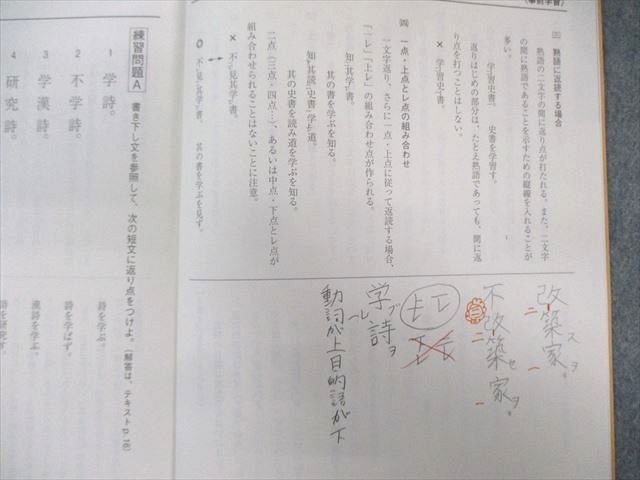 (事前学習)
㈢ 熟語に返読する場合
熟語の二文字の間に返り点が打たれる。また、二文字
の間に熟語であることを示すための縦線を入れることが
多い。
学二習史書一 史書を学習す。
返りはじめの部分は、たとえ熟語であっても、間に返
り点を打つことはしない。
× 学二習史一書。
㈣ 一点・上点とレ点の組み合わせ
一文字返り、さらに一点・上点に従って返読する場合、
「一レ」「上レ」の組み合わせ点が作られる。
知レ学二其書一。
其の書を学ぶを知る。
其の史書を読み道を学ぶを知る。
二点(三点・四点…)、あるいは中点・下点とレ点が
組み合わせられることはないことに注意。
其の書を学ぶを見ず。
改築家。
ス ヲ
二 一
不改築家。
セ ヲ
三 二 一
上レ 一レ
学ブ詩ヲ
レ
動詞が上目的語が下
練習問題A 書き下し文を参照して、次の短文に返り点をつけよ。(解答は、テキストp.16)
1 学詩。 詩を学ぶ。
2 不学詩。 詩を学ばず。
3 学漢詩。 漢詩を学ぶ。
4 研究詩。 詩を研究す。